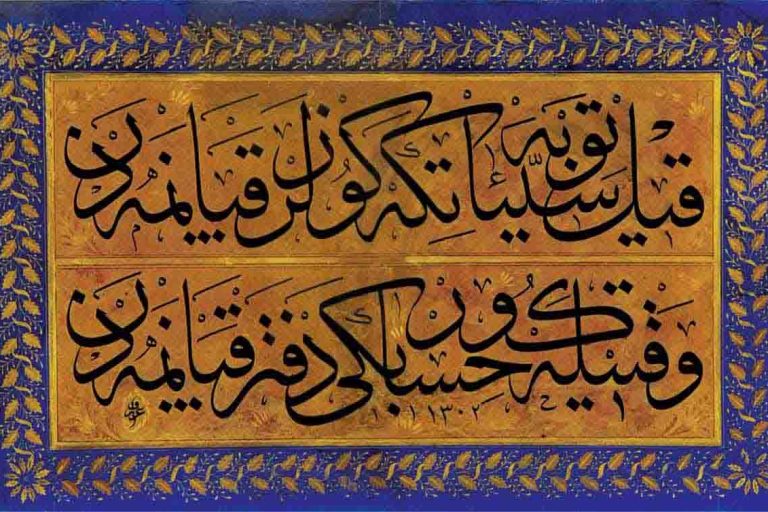 قيل توبه سيّئاتكه كوزلر قپانمه دن
وقتيله كور حسابكى دفتر قپانمه دن
١٣٠٢